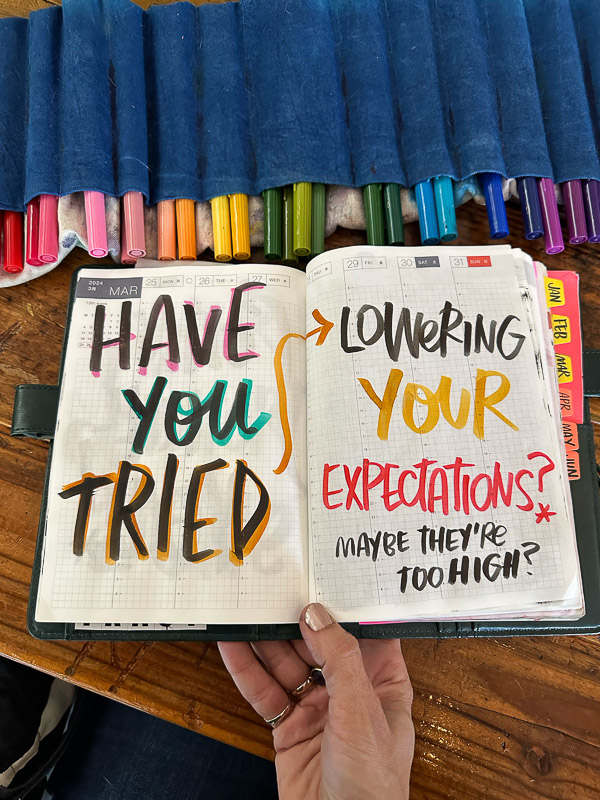 2024
3月 MAR
25 MON 月
26 TUE 火
27 WED 水
HAVE
YOU
TRIED
THU 木
29 FRI 金
30 SAT 土
31 SUN 日
LOWERING
YOUR
EXPECTATIONS?*
MAYBE THEY'RE
TOO HIGH?
JAN
FEB
MAR
APR
MAY
JUN